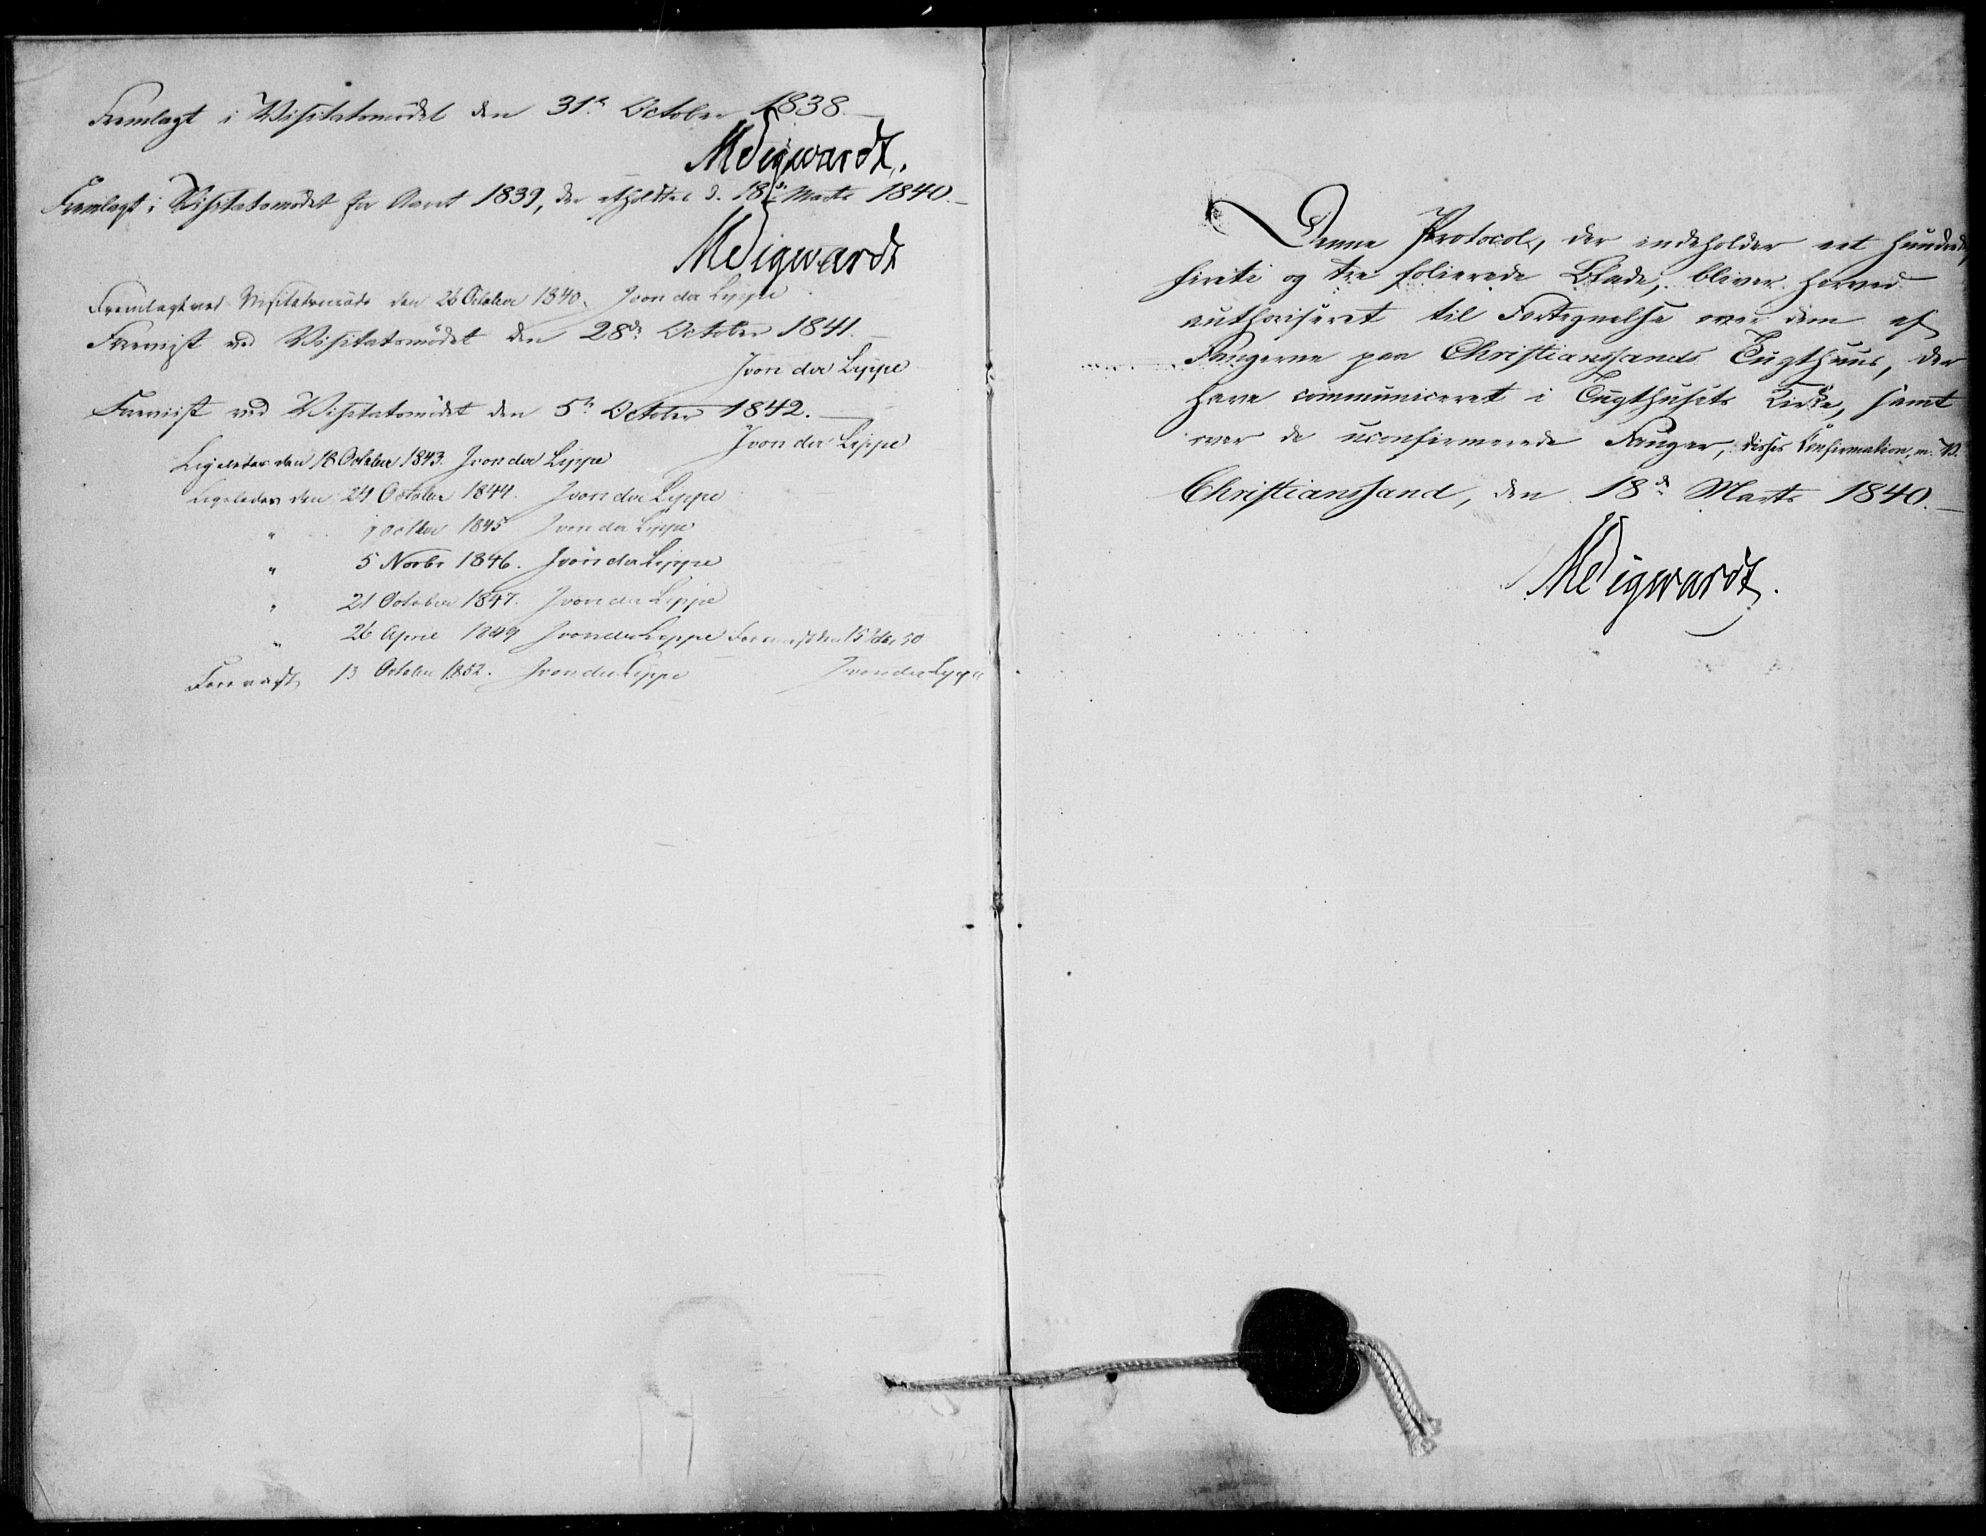 Fremlagt i Visitatsmødet den 31te October 1838.
MSigwardt.
Fremlagt i Visitatsmødet for Aaret 1839, der afholdtes d. 18de Marts 1840.
MSigwardt
Fremlagt ved Visitatsmøde den 26 October 1840. J von der Lippe
Fremvist ved Visitatsmødet den 28de October 1841.
J von der Lippe
Fremvist ved Visitatsmødet den 5te October 1842.
J von der Lippe
Ligeledes den 18 October 1843. J von der Lippe
Ligeledes den 24 October 1844. J von der Lippe
" October 1845 J von der Lippe
" 5 Novbr 1846. J von der Lippe
" 21 October 1847. J von der Lippe
" 26 April 1849 J von der Lippe Forevist den 50
Forevist 13 October 1852. J von der Lippe J von der Lippe
Denne Protocol, der indeholder eet hundrede,
fireti og tre folierede Blade, bliver herved
authoriseret til Fortegnelse over dem af
Fangerne paa Christianssands Tugthuus, der
have communiceret i Tugthusets Kirke, samt
over de uconfirmerede Fanger, disses Confirmation, m. V.
Christianssand, den 18de Marts 1840.
MSigwardt.